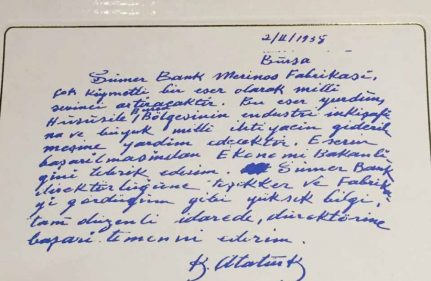 2/II/1938
Bursa
Sümer Bank Merinos Fabrikası,
çok kıymetli bir eser olarak milli
sevinci artıracaktır. Bu eser yurdun,
Hususile Bursa Bölgesinin endüstri inkişafı-
na ve büyük milli ihtiyacın gideril
mesine yardım edecektir. Eserin
başarılmasından Ekonomi Bakanlı-
ğını tebrik ederim. Sümer Bank
Direktörlüğüne teşekkür ve Fabrika-
yı gördüğüm gibi yüksek bilgi,
tam düzenli idarede, direktörüne
başarı temenni ederim.
K. Atatürk